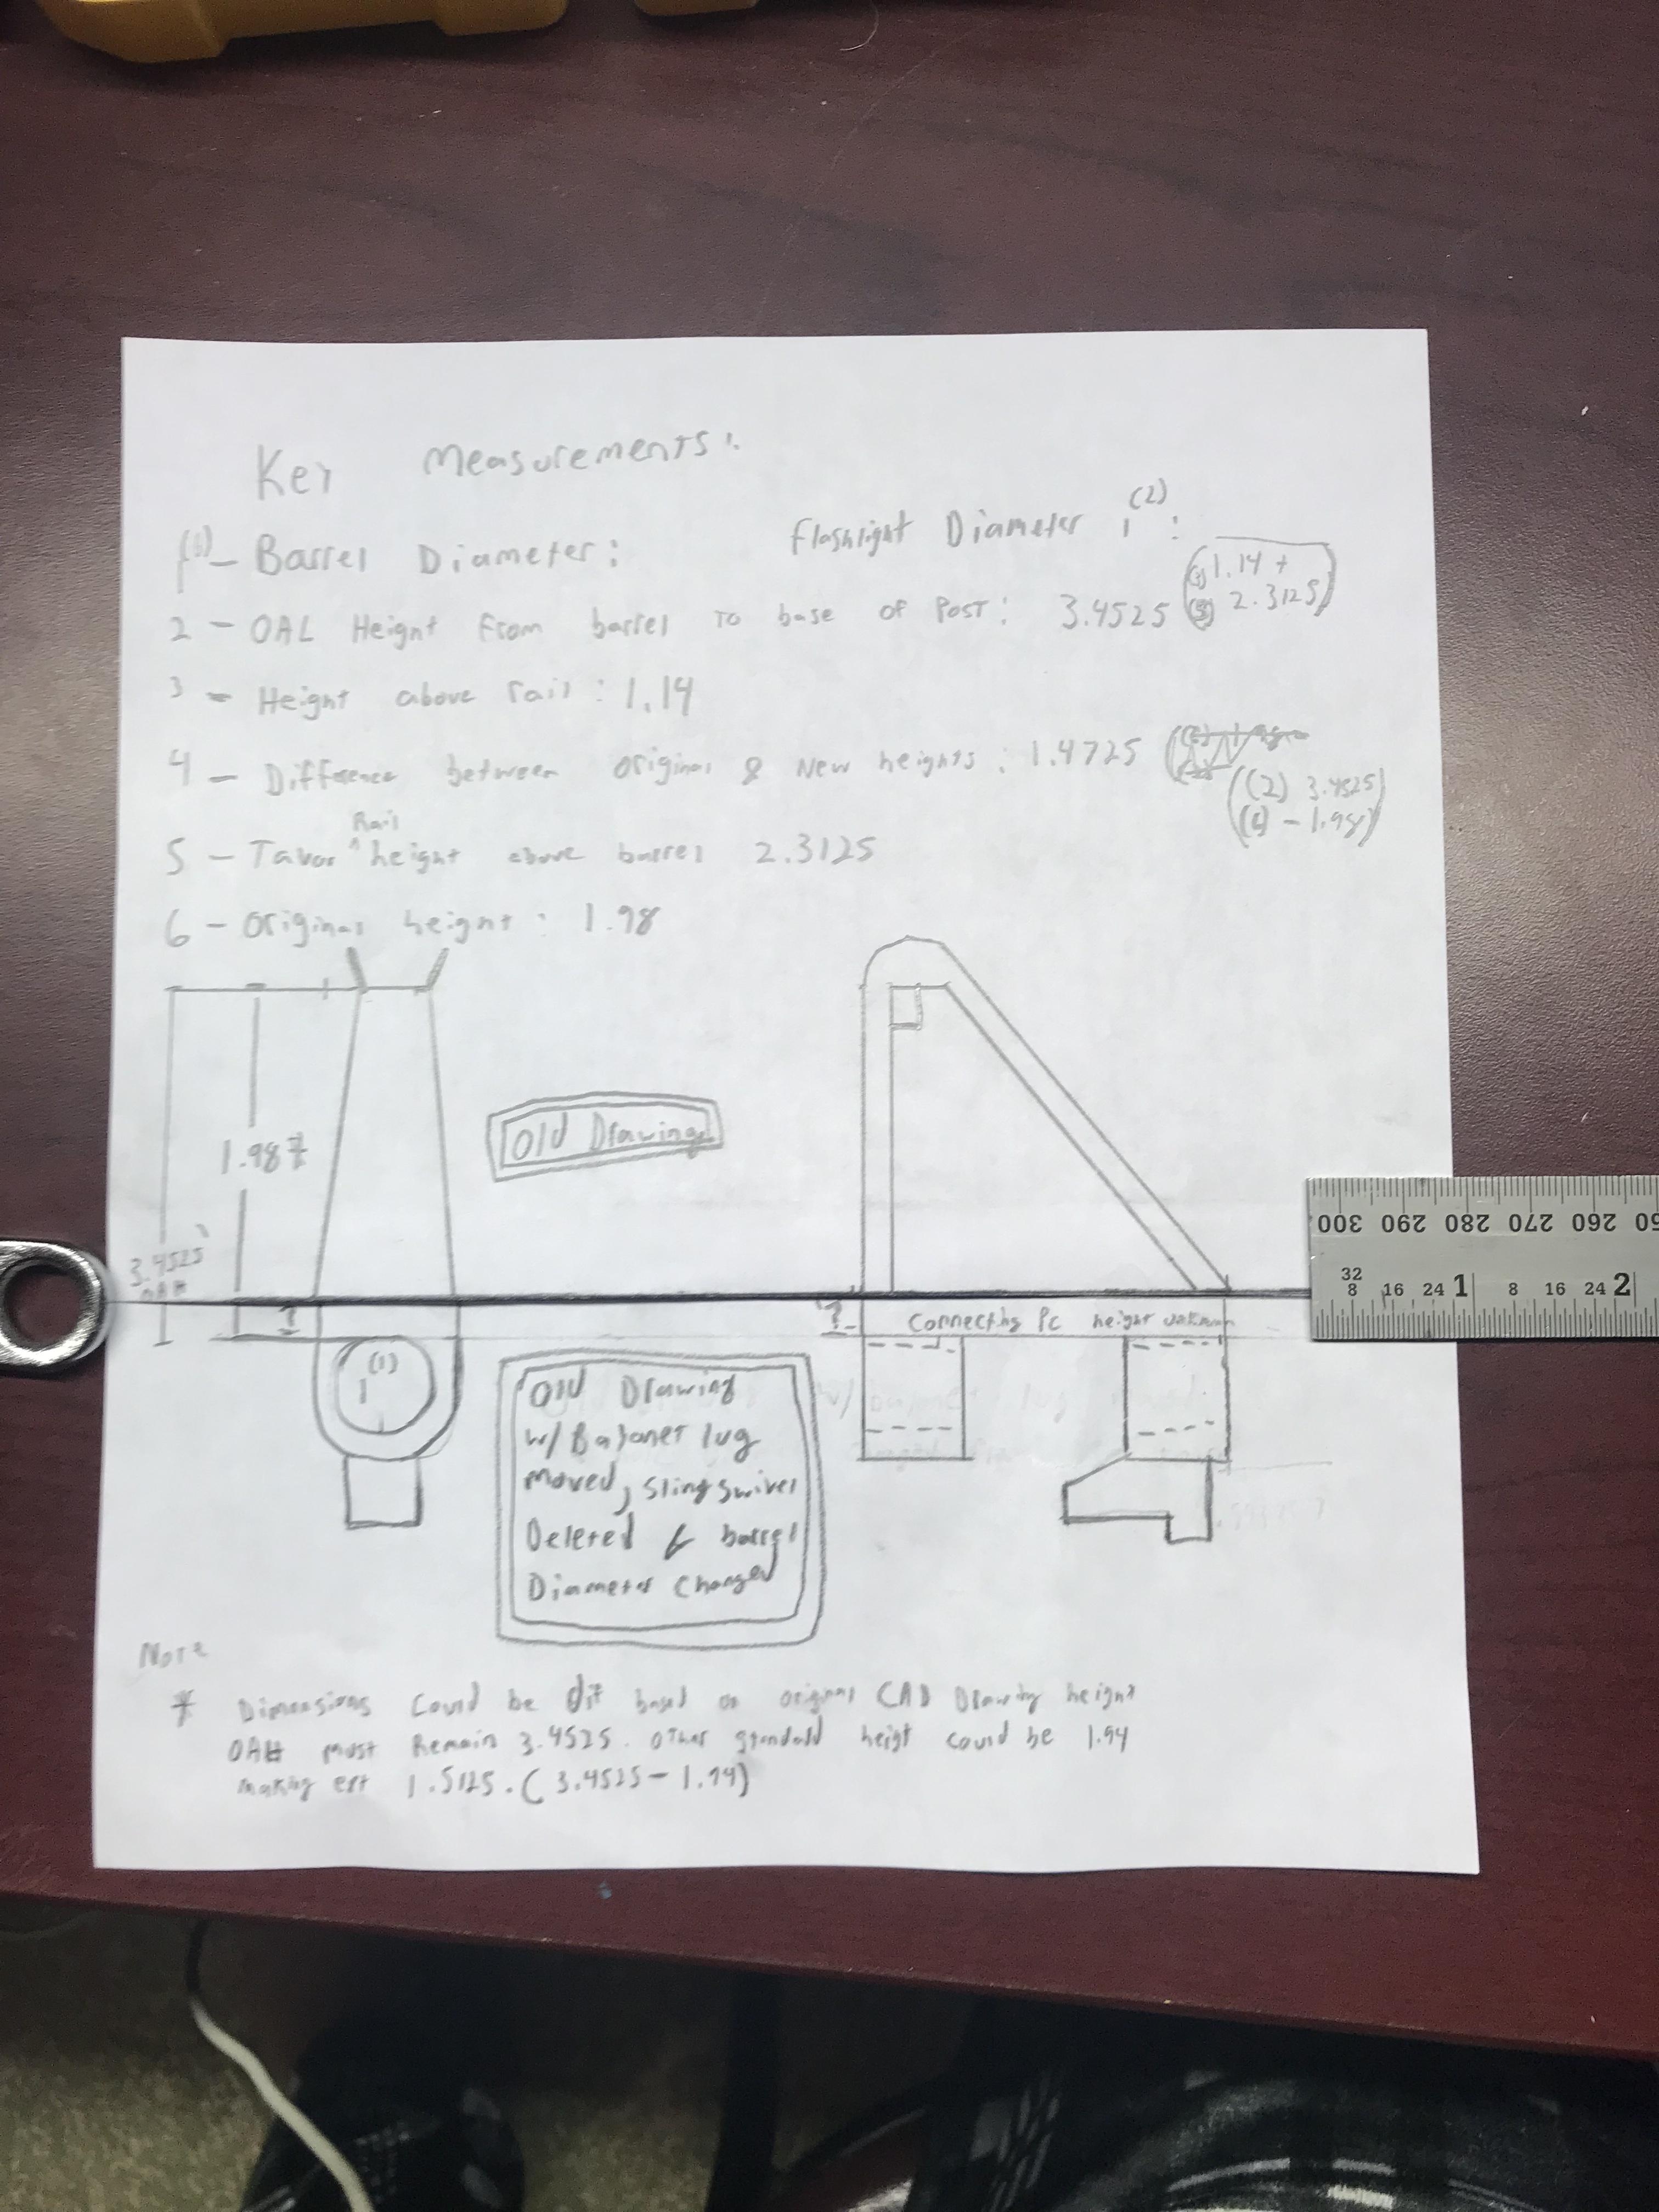 Key Measurements:
(1) - Barrel Diameter: Flashlight Diameter (2) :
2 - OAL Height From barrel to base of Post: 3.4525 (3) 1.14 + (5) 2.3125
3 - Height above rail: 1.14
4 - Difference between original & New heights: 1.4725
((2) 3.4525
(6) - 1.98)
Rail
5 - Tavor ^ height above barrel 2.3125
6 - Original height: 1.98
1.98 *
Old Drawing
3.4525
OAH
?
?
Connecting Pc height unknown
(1)
Old Drawing
w/ Bajonet lug
moved, sling swivel
Deleted & barrel
Diameter Changed
Note
* Dimensions Could be dif based on original CAD Drawing height
OAH must Remain 3.4525. other standard height could be 1.94
making ext 1.5125. (3.4525 - 1.94)
300 290 280 270 260 50
32
8 16 24 1 8 16 24 2